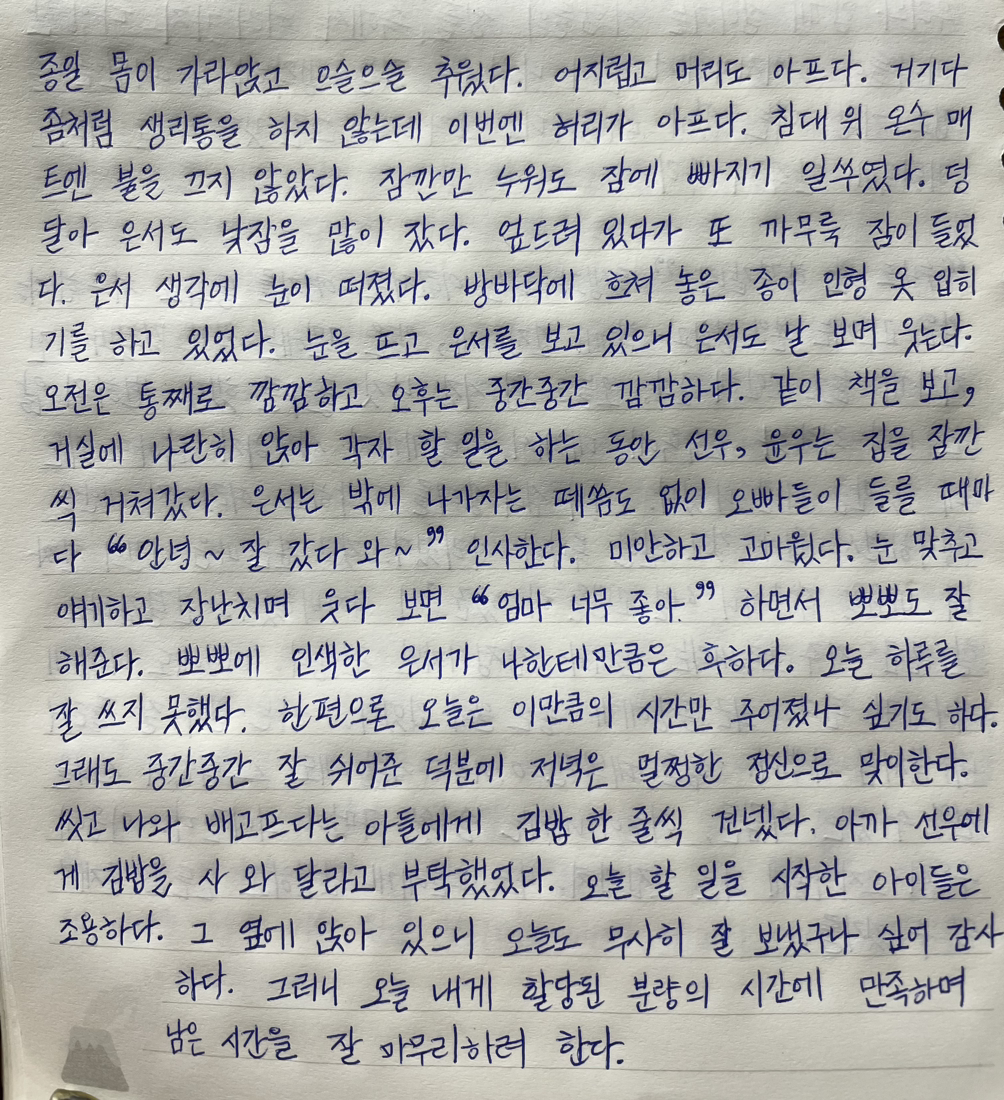 종일 몸이 가라앉고 으슬으슬 추웠다. 어지럽고 머리도 아프다. 거기다
좀처럼 생리통을 하지 않는데 이번엔 허리가 아프다. 침대 위 온수 매
트엔 불을 끄지 않았다. 잠깐만 누워도 잠에 빠지기 일쑤였다. 덩
달아 은서도 낮잠을 많이 잤다. 엎드려 있다가 또 까무룩 잠이 들었
다. 은서 생각에 눈이 떠졌다. 방바닥에 흐쳐 놓은 종이 인형 옷 입히
기를 하고 있었다. 눈을 뜨고 은서를 보고 있으니 은서도 날 보며 웃는다.
오전은 통째로 깜깜하고 오후는 중간중간 깜깜하다. 같이 책을 보고,
거실에 나란히 앉아 각자 할 일을 하는 동안 선우, 윤우는 집을 잠깐
씩 거쳐갔다. 은서는 밖에 나가자는 떼씀도 없이 오빠들이 들를 때마
다 “안녕~ 잘 갔다 와~” 인사한다. 미안하고 고마웠다. 눈 맞추고
얘기하고 장난치며 웃다 보면 “엄마 너무 좋아.” 하면서 뽀뽀도 잘
해준다. 뽀뽀에 인색한 은서가 나한테만큼은 후하다. 오늘 하루를
잘 쓰지 못했다. 한편으론 오늘은 이만큼의 시간만 주어졌나 싶기도 하다.
그래도 중간중간 잘 쉬어준 덕분에 저녁은 멀쩡한 정신으로 맞이한다.
씻고 나와 배고프다는 아들에게 김밥 한 줄씩 건넸다. 아까 선우에
게 김밥을 사 와 달라고 부탁했었다. 오늘 할 일을 시작한 아이들은
조용하다. 그 옆에 앉아 있으니 오늘도 무사히 잘 보냈구나 싶어 감사
하다. 그러니 오늘 내게 할당된 분량의 시간에 만족하며
남은 시간을 잘 마무리하려 한다.